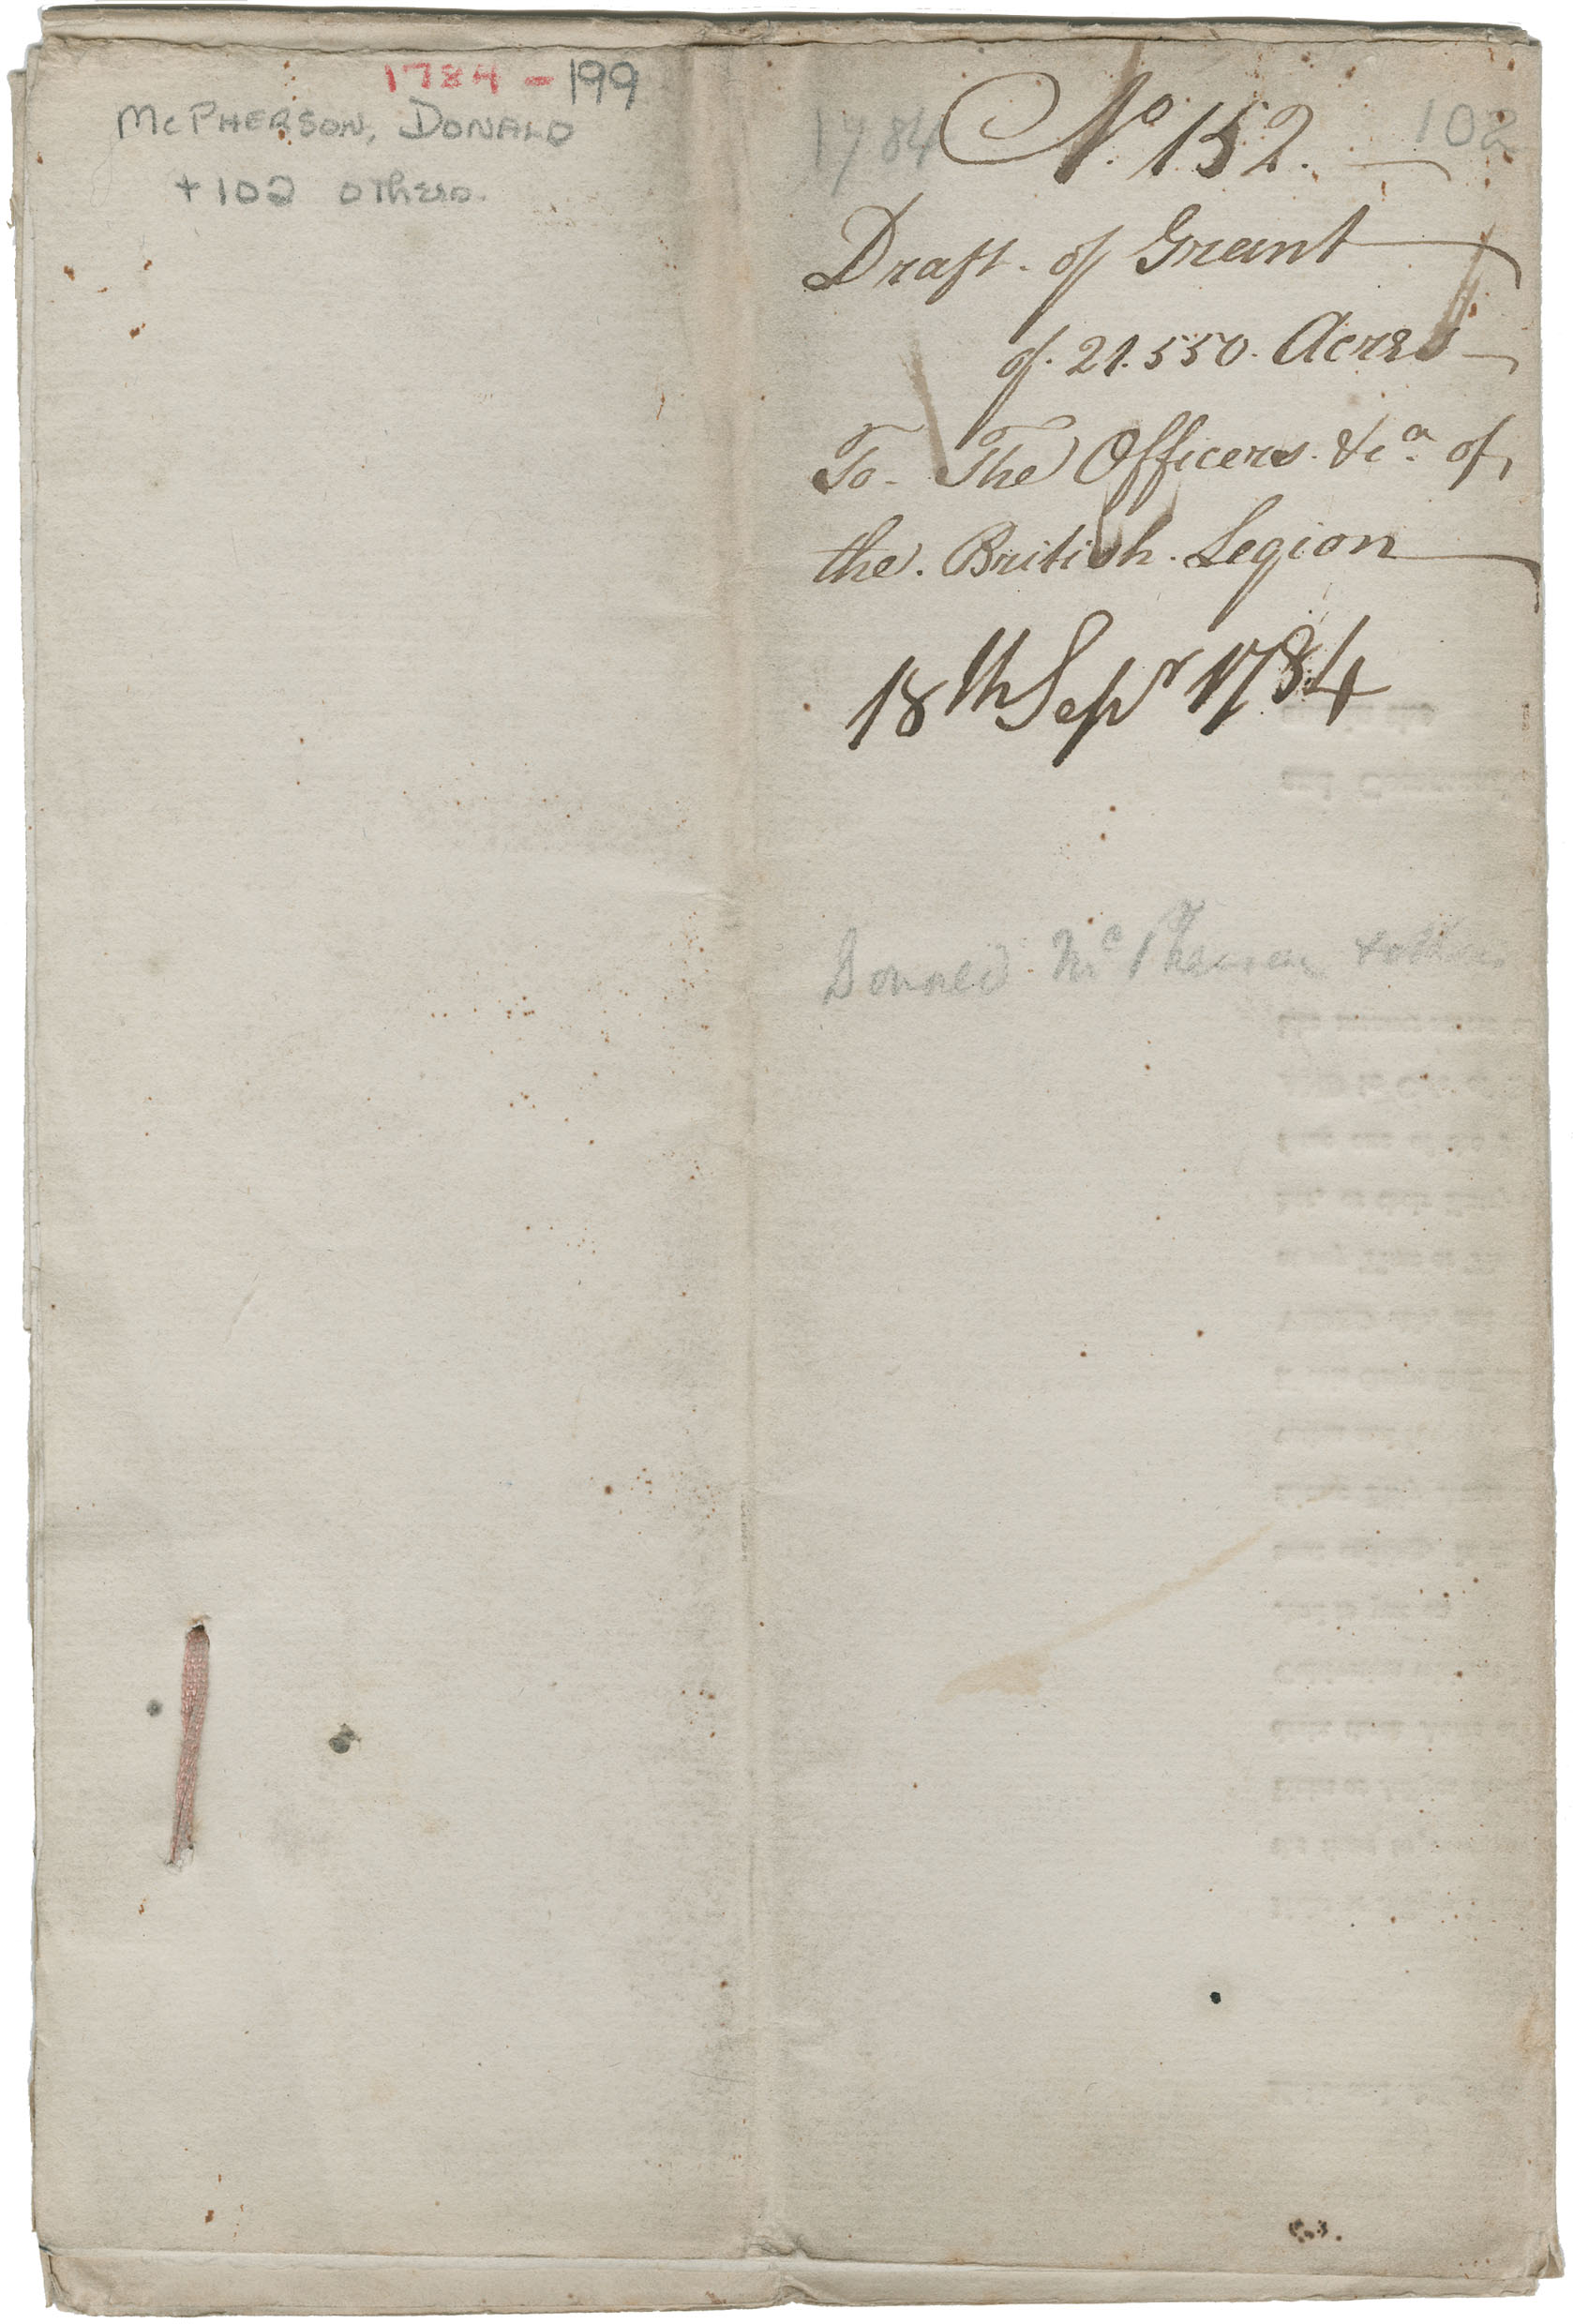 1784 - 199
McPHERSON, DONALD
+ 102 others.
1784
102
No. 152.
Draft. of Grant
of. 21.550. Acres
To. The Officers. &ca. of,
the. British. Legion
18th Sepr 1784
Donald McPherson + others